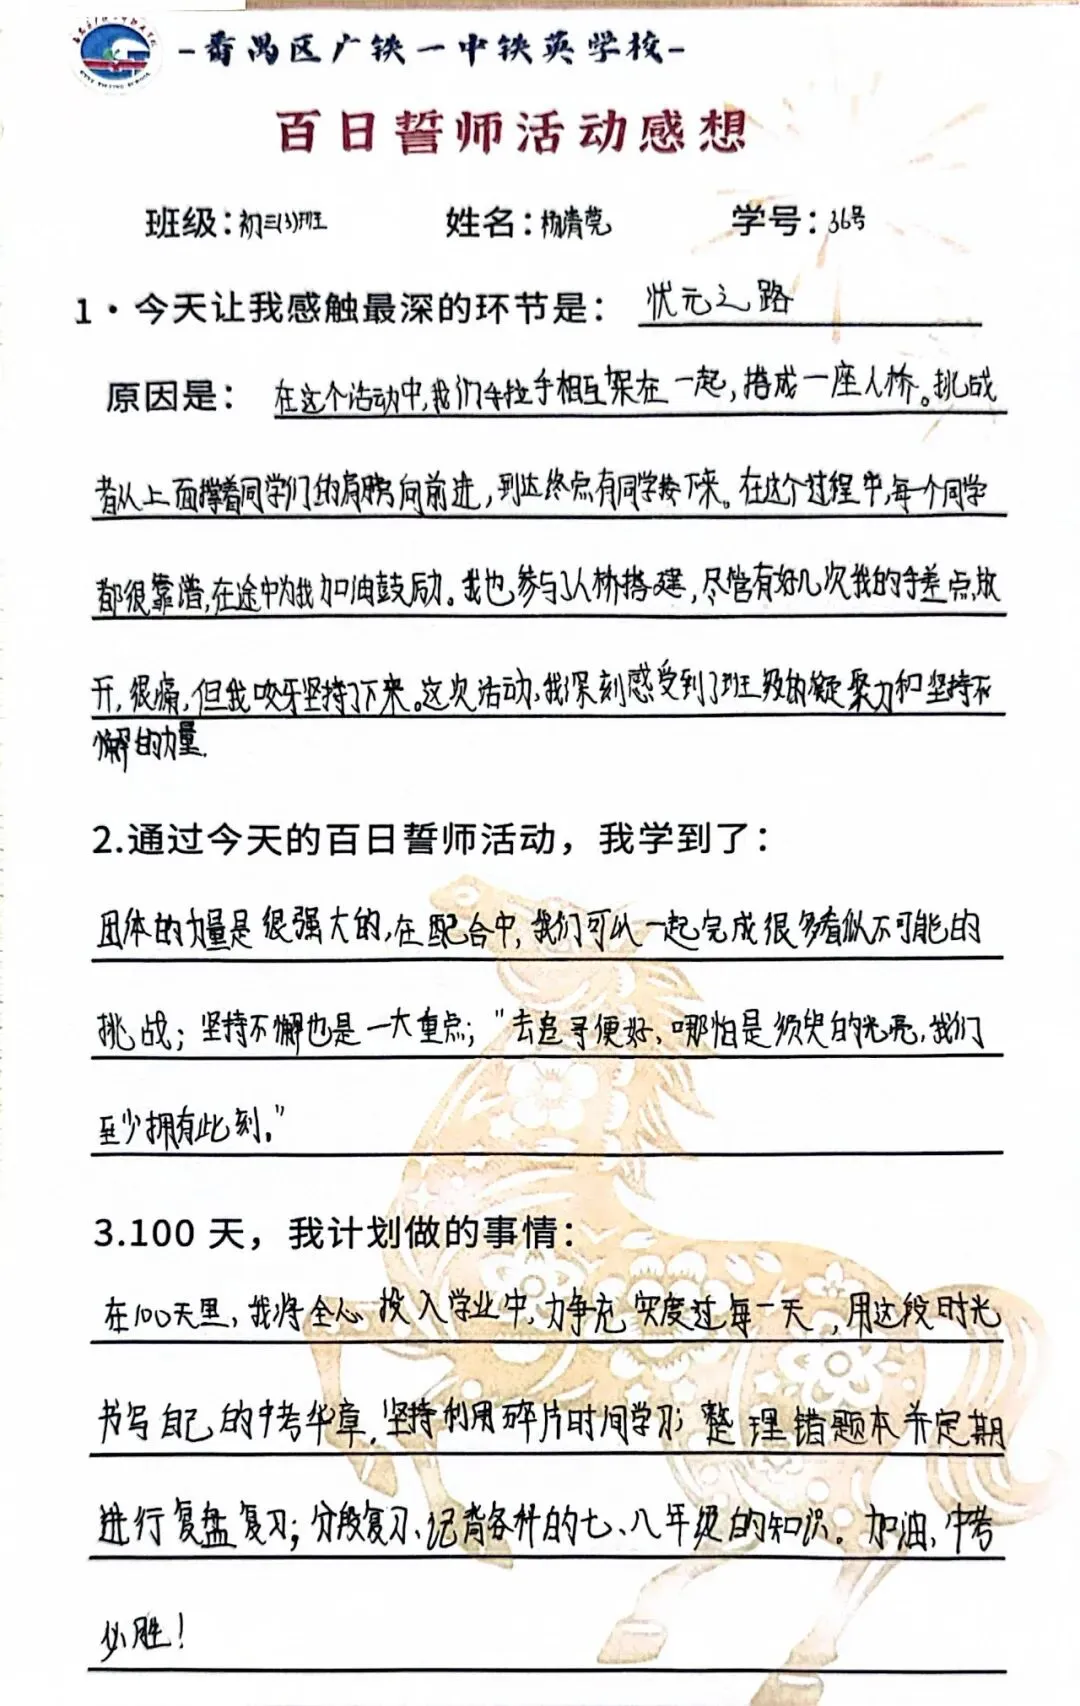 -番禺区广铁一中铁英学校-
百日誓师活动感想
班级：初三(3)班 姓名：杨清莞 学号：36号
1·今天让我感触最深的环节是：状元之路
原因是：在这个活动中，我们手拉手相互架在一起，搭成一座人桥。挑战
者从上面撑着同学们的肩膀向前进，到达终点有同学接下来。在这个过程中，每一个同学
都很靠谱，在途中为我加油鼓励。我也参与人桥搭建，尽管有好几次我的手差点放
开，很痛，但我咬牙坚持了下来。这次活动，我深刻感受到了班级的凝聚力和坚持不
懈的力量.
2.通过今天的百日誓师活动，我学到了：
团体的力量是很强大的，在配合中，我们可以一起完成很多看似不可能的
挑战；坚持不懈也是一大重点；"去追寻便好，哪怕是须臾的光亮，我们
至少拥有此刻。"
3.100 天，我计划做的事情：
在100天里，我将全心投入学业中，力争充实度过每一天，用这段时光
书写自己的中考华章.坚持利用碎片时间学习；整理错题本并定期
进行复盘复习；分段复习、记背各科的七、八年级的知识。加油，中考
必胜！